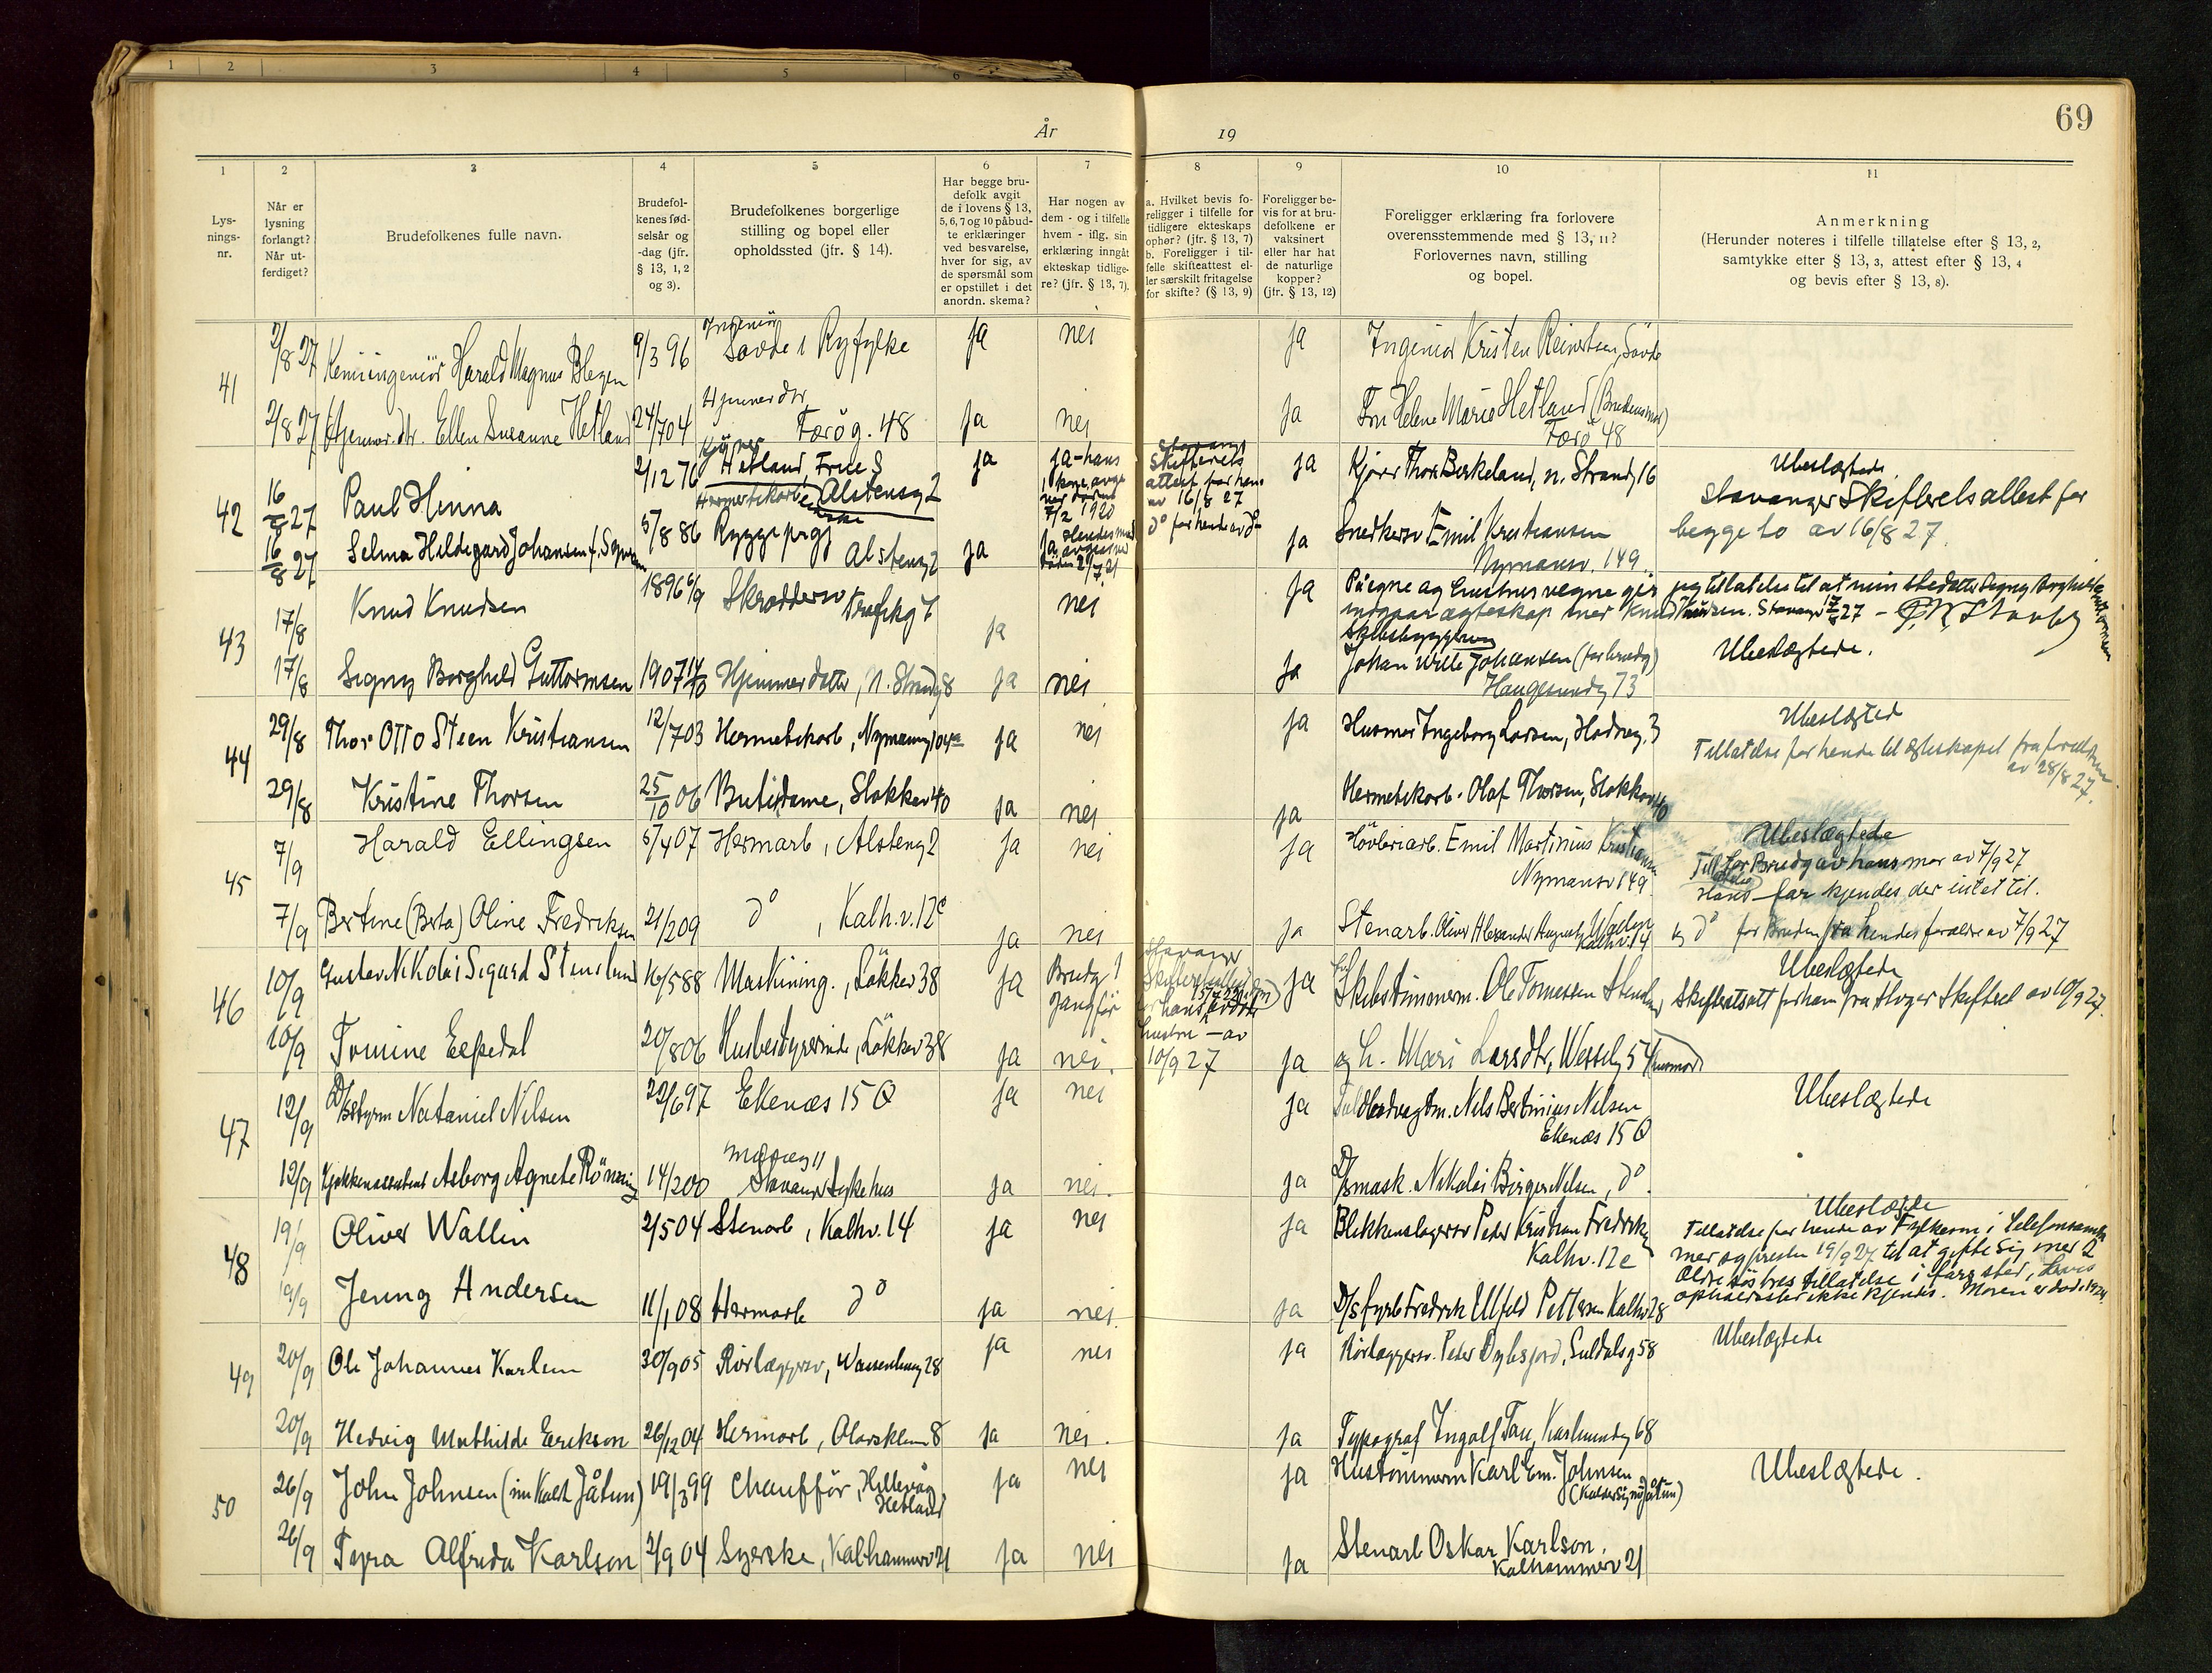 1 2 3 4 5 6
69
År 19
1 2 3 4 5 6 7 8 9 10 11
Lys-
nings-
nr.
Når er
lysning
forlangt?
Når ut-
ferdiget?
Brudefolkenes fulle navn.
Brudefol-
kenes fød-
selsår og
-dag (jfr.
§ 13, 1, 2
og 3).
Brudefolkenes borgerlige
stilling og bopel eller
opholdssted (jfr. § 14).
Har begge bru-
defolk avgit
de i lovens § 13,
5, 6, 7 og 10 påbud-
te erklæringer
ved besvarelse,
hver for sig, av
de spørsmål som
er opstillet i det
anordn. skema?
Har nogen av
dem - og i tilfelle
hvem - iflg. sin
erklæring inngåt
ekteskap tidlige-
re? (jfr. § 13, 7).
a. Hvilket bevis fo-
religger i tilfelle for
tidligere ekteskaps
ophør? (jfr. § 13, 7)
b. Foreligger i til-
felle skifteattest el-
ler særskilt fritagelse
for skifte? (§ 13, 9)
Foreligger be-
vis for at bru-
defolkene er
vaksinert
eller har hat
de naturlige
kopper?
(jfr. § 13, 12)
Foreligger erklæring fra forlovere
overensstemmende med § 13, 11?
Forlovernes navn, stilling
og bopel.
Anmerkning
(Herunder noteres i tilfelle tillatelse efter § 13, 2,
samtykke efter § 13, 3, attest efter § 13, 4
og bevis efter § 13, 8).
41 2/8 27 Kemiingeniör Harald Magnus Blegen 9/3 96 Ingeniör Sovde i Ryfylke ja nei ja Ingeniör Kristen Reinertsen, Sövde
2/8 27 Hjemmev. dtr. Ellen Susanne Hetland 24/7 04 Hjemmevdtr, Færög. 48 ja nei ja Fru Helene Marie Hetland (Brudens mor)
Færö 48
42 16/8 27 Paul Hinna 2/12 76 Kjörer Hetland, Frue S Alstensg 2 ja ja - hans
7/2 1920
Skifterets
attest for ham
av 16/8 27
ja Kjörer Thor. Berkeland, n. Strandg 16
Ubeslægtede
Stavanger Skifterets attest for
begge to av 16/8 27.
16/8 27 Selma Hildegard Johansen f. 5/8 86 Alsteng 2 ja
do for hende av do
ja Snedkersv Emil Kristiansen
Nymansv. 149.
43 17/8 Knud Knudsen 1896 6/9 Skræddersv nei ja På egne og hustrus vegne gir jeg tillatelse til at min stedatter Signy Borghild Guttormsen
indgaar ægteskap med Knud Knudsen. Stavanger 17/8 27 -
ja
17/8 Signy Borghild Guttormsen 1907 14/10 Hjemmedatter, N. Strandg 8 ja nei ja
Johan Wille Johansen (farbrudg)
Haugesundg 73
Ubeslægtede.
44 29/8 Thor Otto Steen Kristiansen 12/7 03 Hermetikarb, Nymansv 104 ja nei ja Husmor Ingeborg Larsen, Hodneg. 3
Ubeslægted
Tillatelse for hende til ægteskapet fra foreldrene
av 28/8 27.
29/8 Kristine Thorsen 25/10 06 Butikdame, Slokkev 40 ja nei ja Hermetikarb. Olaf Thorsen, Slokkev 40
45 7/9 Harald Ellingsen 5/4 07 Hermarb, Alsteng 2 ja nei ja Hövleriarb. Emil Martinius Kristiansen
Nymansv 149.
Ubeslægtede
Till. for Brudg av hans mor av 7/9 27
Hans far kjendes der intet til.
7/9 Bertine (Berta) Oline Fredriksen 21/2 09 do, Kalh.v. 12c ja nei ja Stenarb. Oliver Alexander August Wallin
Kalh.v. 14
og do for Bruden fra hendes foreldre av 7/9 27
46 10/9 Gustav Nikolai Sigurd Stensland 16/5 88 Maskining., Lökkev 38 ja Brudg 1
gang för
Stavanger
10/9 27
ja Skibstimmerm. Ole Tomessen Stensland
Ubeslægtede
Skifteatt for ham fra Stvger Skifteret av 10/9 27.
10/9 Tomine Espedal 20/8 06 Husbestyrerinde, Lökkev 38 ja nei. ja og h. Mari Larsdtr, Wesselg 54 (husmor)
47 12/9 D/Bstyrm Nataniel Nilsen 22/6 97 Ekenæs 15 Q ja nei ja Nils Bertinius Nilsen
Ekenæs 15 Q
Ubeslægtede
12/9 Kjøkkenassistent Asborg Agnete Rönning 14/2 00
Stavanger Sykehus ja nei. ja D/Smask. Nikolai Birger Nilsen, do.
48 19/9 Oliver Wallin 2/5 04 Stenarb, Kalhv. 14 ja nei ja Blikkenslagersv Peder Kristian Fredriksen
Kalhv. 12c
Ubeslægtede
Tillatelse for hende av Fylkesm i Telefonsamtale
med ogpresten 19/9 27 til at gifte sig med 2
Eldre söstres tillatelse i fars sted, hvis
opholdssted ikke kjendes. Moren er död i 1924.
19/9 Jenny Andersen 11/1 08 Hermarb do ja nei. ja D/S fyrb Fredrik Ulfeld Pettersen Kalhv 28
49 20/9 Ole Johannes Karlsen 30/9 05 Rörlæggersv, Wassenbueng 28 ja nei ja Rörlæggersv. Peder Dybsjord, Suldalsg 58
Ubeslægtede
20/9 Hedvig Mathilde Eerikson 26/12 04 Hermarb, Olavsklem 8 ja nei. ja Typograf Ingolf Tau, Karlsmindeg 68
50 26/9 John Johnsen (nu kalt Jåtun) 19/3 99 Chaufför, Hillevåg
Hetland ja nei ja Hustömmerm Karl Em. Johnsen
(Kalder sig nu Jåtun)
Ubeslægtede.
26/9 Tyra Alfrida Karlson 2/9 04 Syerske, Kalhammerv 21 ja nei ja Stenarb Oskar Karlson.
Kalhammerv 21